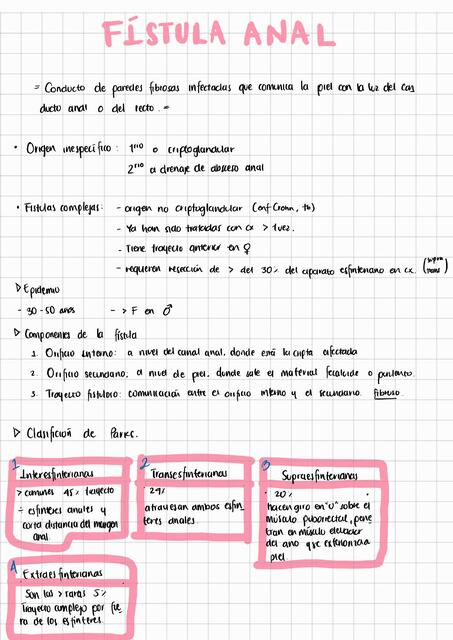 FÍSTULA ANAL
= Conducto de paredes fibrosas infectadas que comunica la piel con la luz del con
ducto anal o del recto. =
• Origen inespecífico: 1rio o criptoglandular
2rio a drenaje de absceso anal
• Fistulas complejas: - origen no criptoglandular (enf Crohn, tb)
- Ya han sido tratadas con cx > 1 vez.
- Tiene trayecto anterior en ♀
- requieren resección de > del 30% del aparato esfinteriano en cx. (supra trans)
▷ Epidemio
- 30-50 años - > F en ♂
▷ Componentes de la fístula
1. Orificio interno: a nivel del canal anal, donde está la cripta afectada
2. Orificio secundario: a nivel de piel, donde sale el material fecaloide o purulento.
3. Trayecto fistuloso: comunicación entre el orificio interno y el secundario. fibroso.
▷ Clasificación de Parks.
1 Interesfinterianas
> comunes 45% trayecto
÷ esfinteres anales y
corta distancia del margen
anal.
2 Transesfinterianas
· 29%
atraviesan ambos esfin
teres anales.
3 Supraesfinterianas
· 20%
hacen giro en "U" sobre el
músculo puborrectal, pene
tran en músculo elevador
del ano que exterioriza
piel.
4 Extraesfinterianas
Son las > raras 5%
Trayecto complejo por fue
ra de los esfínteres.